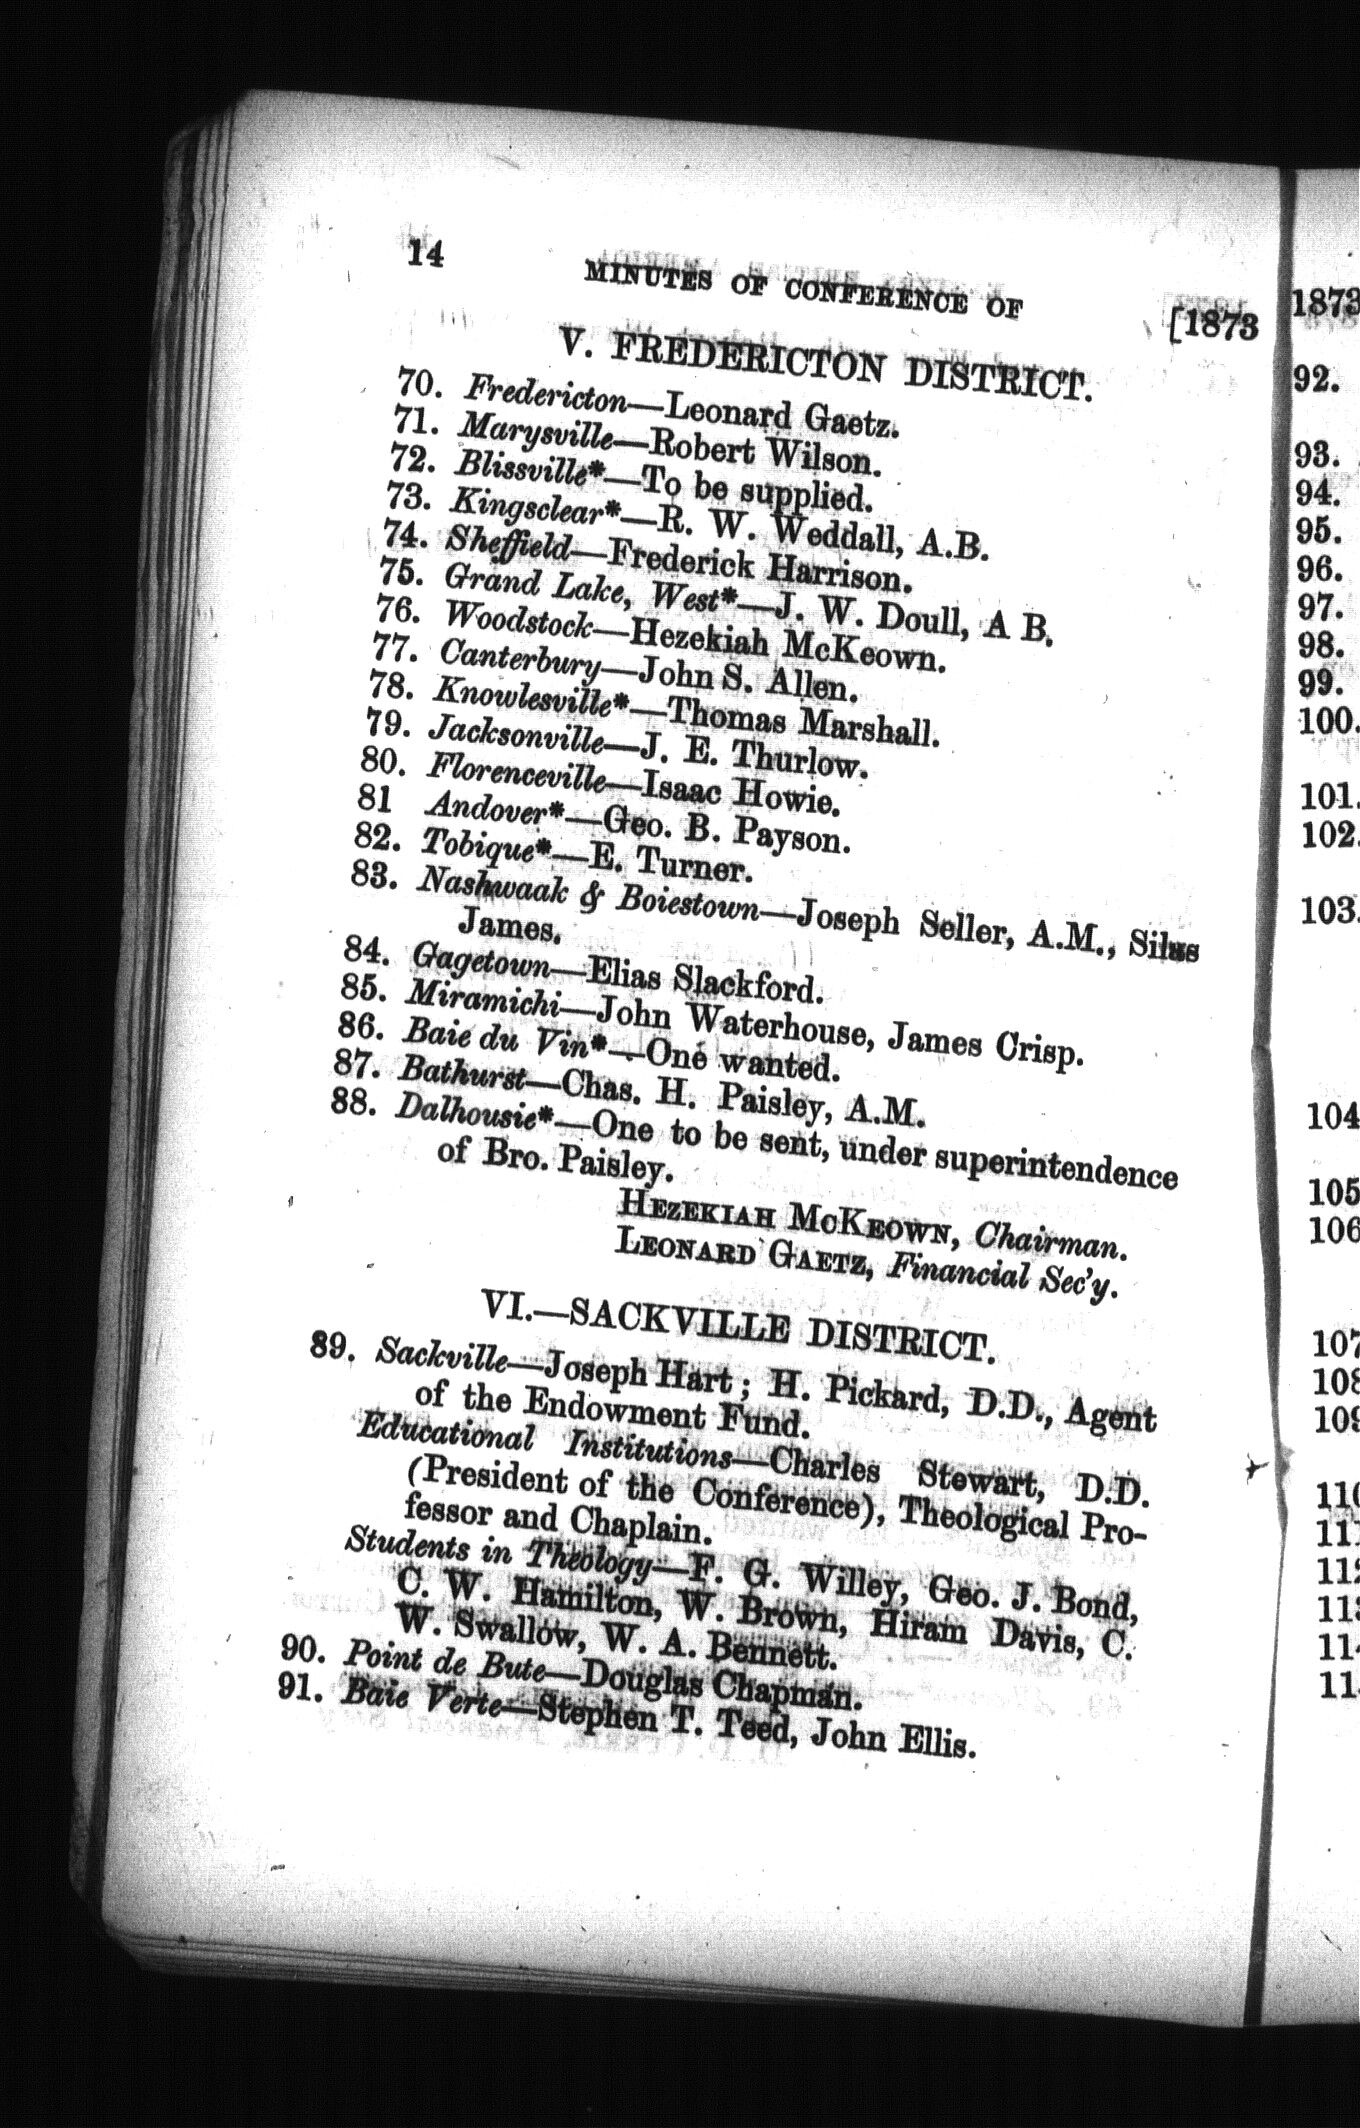 14 MINUTES OF CONFERENCE OF [1873
V. FREDERICTON DISTRICT.
70. Fredericton—Leonard Gaetz.
71. Marysville—Robert Wilson.
72. Blissville*—To be supplied.
73. Kingsclear*—R. W. Weddall, A.B.
74. Sheffield—Frederick Harrison.
75. Grand Lake, West*—J. W. Doull, A B.
76. Woodstock—Hezekiah McKeown.
77. Canterbury—John S. Allen.
78. Knowlesville*—Thomas Marshall.
79. Jacksonville—J. E. Thurlow.
80. Florenceville—Isaac Howie.
81 Andover*—Geo. B. Payson.
82. Tobique*—E. Turner.
83. Nashwaak & Boiestown—Joseph Seller, A.M., Silas
James.
84. Gagetown—Elias Slackford.
85. Miramichi—John Waterhouse, James Crisp.
86. Baie du Vin*—One wanted.
87. Bathurst—Chas. H. Paisley, A.M.
88. Dalhousie*—One to be sent, under superintendence
of Bro. Paisley.
HEZEKIAH MCKEOWN, Chairman.
LEONARD GAETZ, Financial Sec'y.
VI.—SACKVILLE DISTRICT.
89. Sackville—Joseph Hart; H. Pickard, D.D., Agent
of the Endowment Fund.
Educational Institutions—Charles Stewart, D.D.
(President of the Conference), Theological Pro-
fessor and Chaplain.
Students in Theology—F. G. Willey, Geo. J. Bond,
C. W. Hamilton, W. Brown, Hiram Davis, C.
W. Swallow, W. A. Bennett.
90. Point de Bute—Douglas Chapman.
91. Baie Verte—Stephen T. Teed, John Ellis.
1873
92.
93.
94.
95.
96.
97.
98.
99.
100.
101.
102.
103.
104
105
106
107